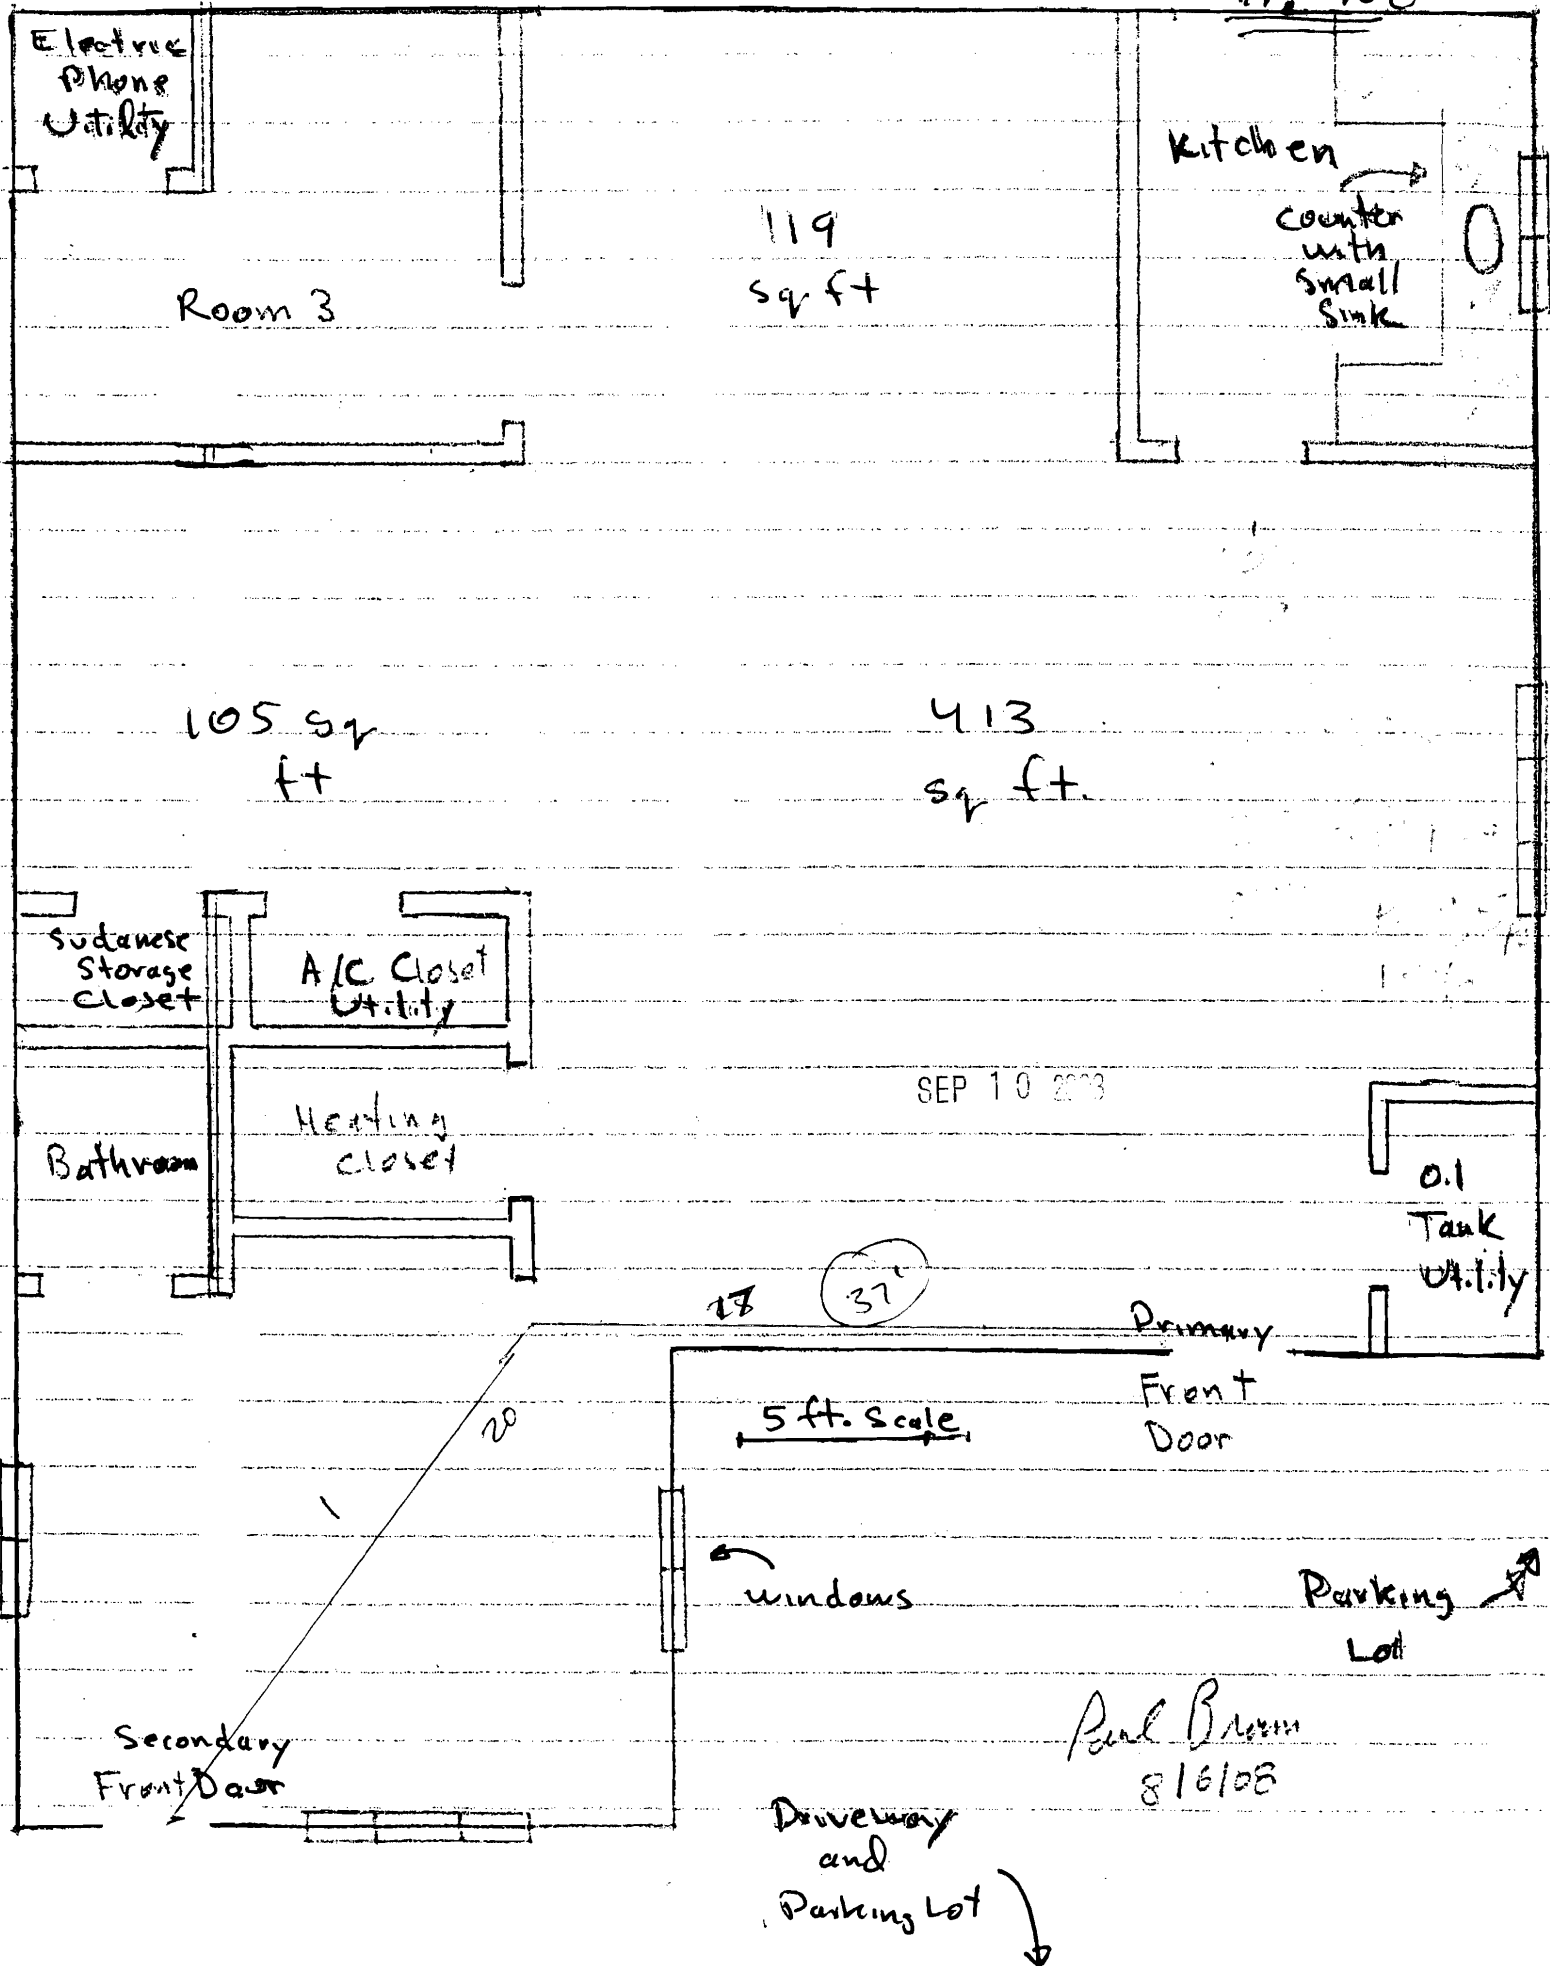 Electric
Phone
Utility
Kitchen
counter
with
small
sink
119
sq ft
Room 3
105 sq
ft
413
sq ft.
Sudanese
Storage
Closet
A/C Closet
Utility
SEP 10
Heating
Closet
Bathroom
Oil
Tank
Utility
37'
Primary
Front
Door
5 ft. Scale
20
windows
Parking
Lot
Secondary
Front Door
Paul Brown
8/6/08
Driveway
and
Parking Lot